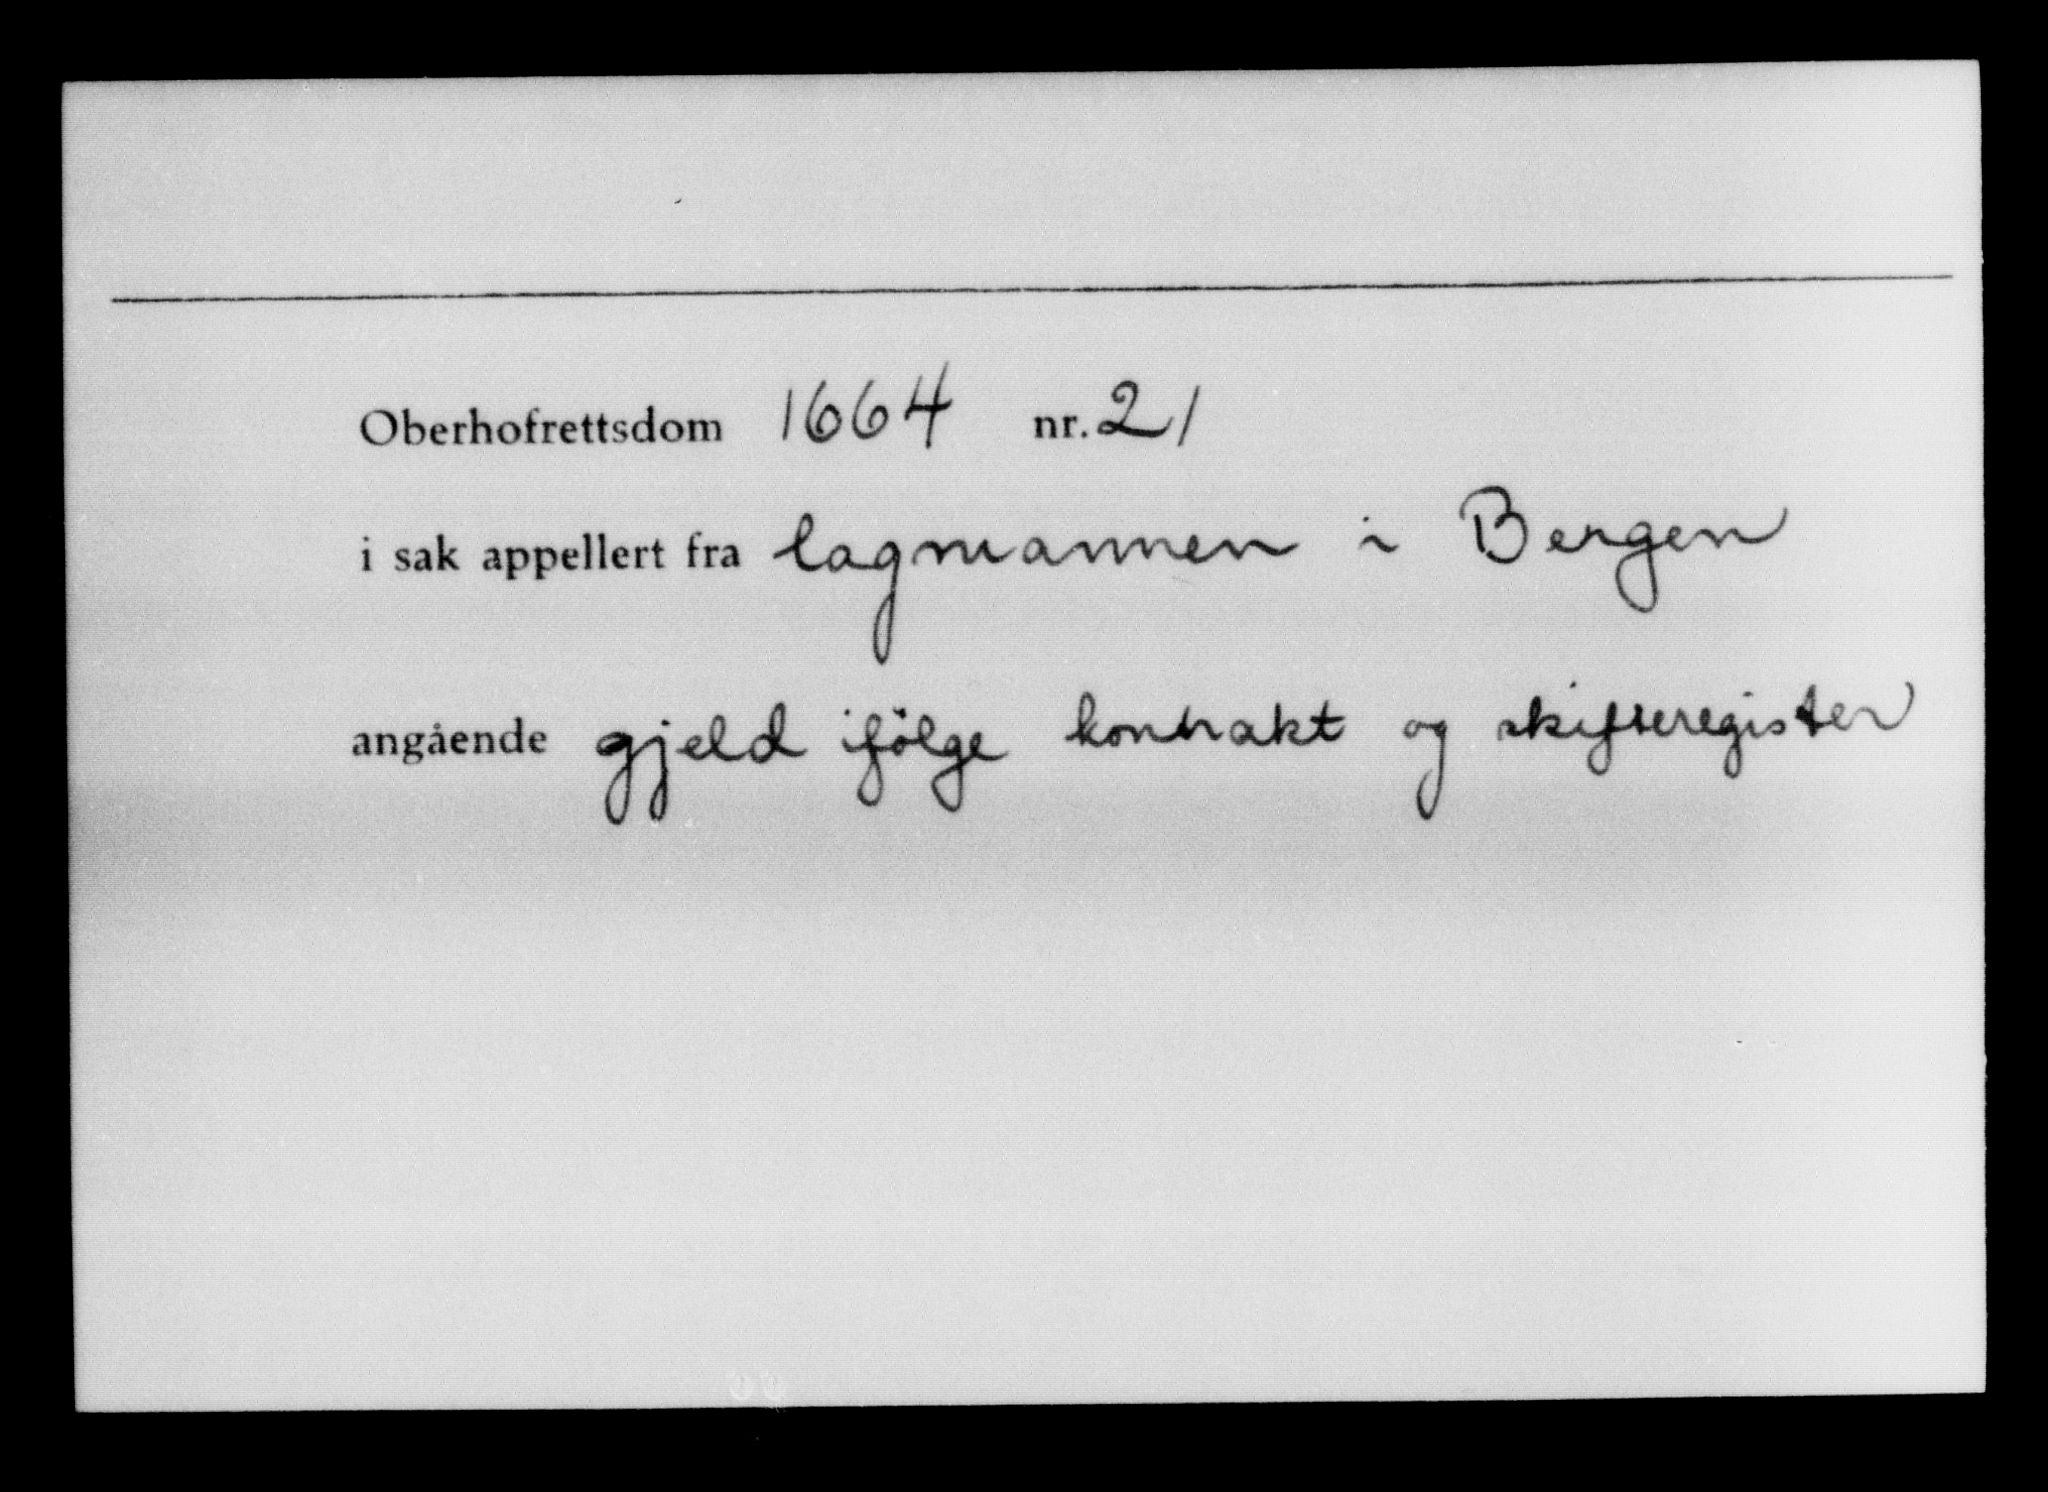 Oberhofrettsdom 1664 nr. 21
i sak appellert fra lagmannen i Bergen
angående gjeld ifölge kontrakt og skifteregister